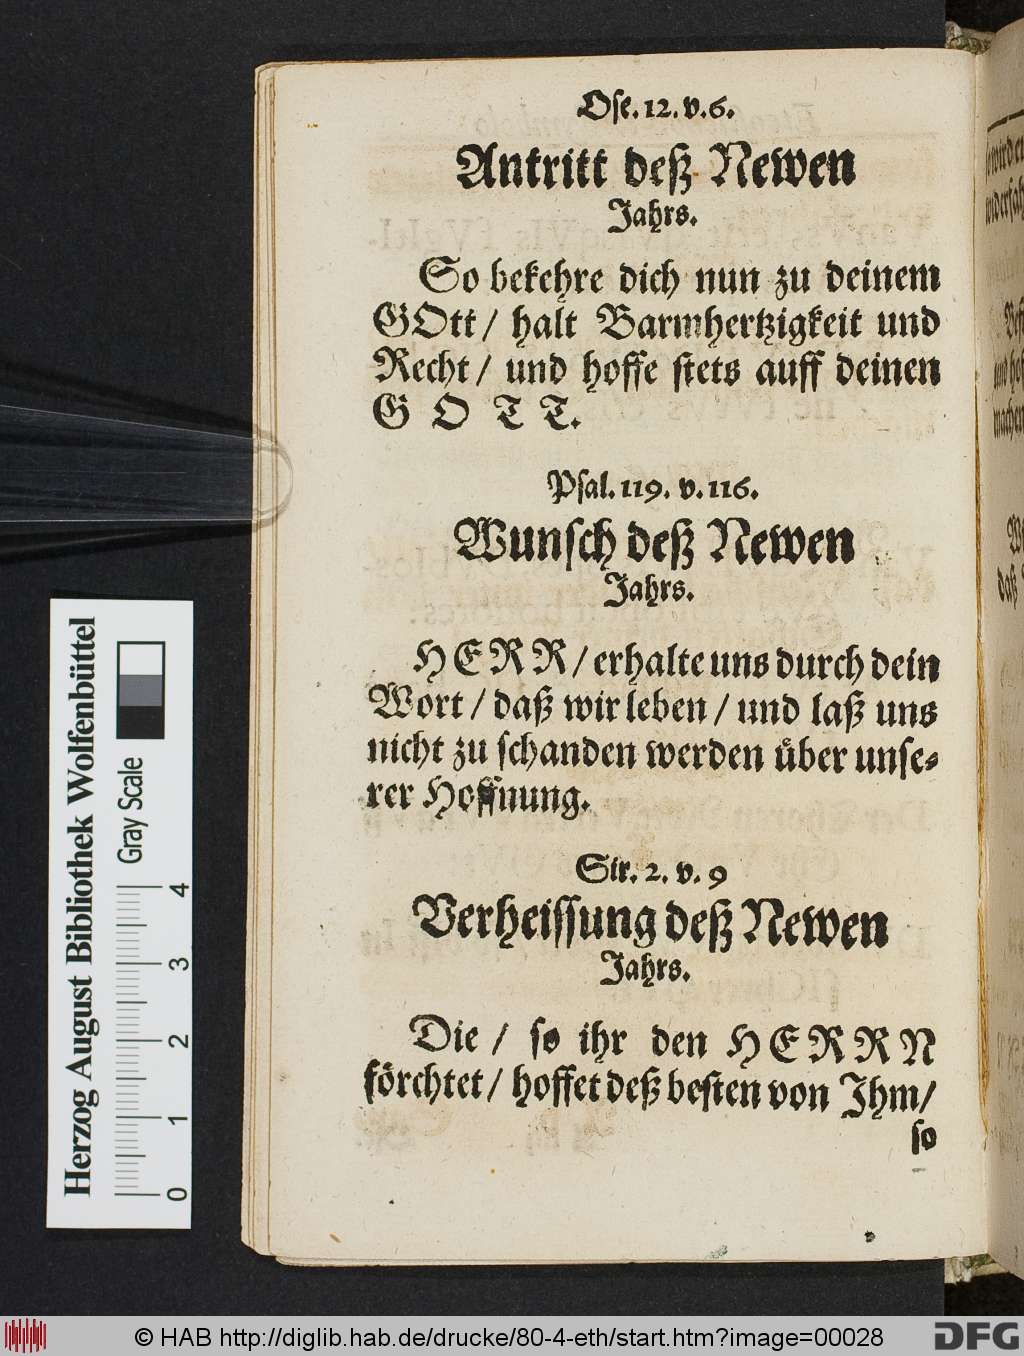 Oſe. 12. v. 6.
Antritt deß Newen
Jahrs.
So bekehre dich nun zu deinem
GOtt / halt Barmhertzigkeit und
Recht / und hoffe ſtets auff deinen
G O T T.
Pſal. 119. v. 116.
Wunſch deß Newen
Jahrs.
HERR / erhalte uns durch dein
Wort / daß wir leben / und laß uns
nicht zu ſchanden werden uͤber unſe-
rer Hoffnung.
Sir. 2. v. 9
Verheiſſung deß Newen
Jahrs.
Die / ſo ihr den HERRN
foͤrchtet / hoffet deß beſten von Ihm /
ſo
Herzog August Bibliothek Wolfenbüttel
Gray Scale
0 1 2 3 4
© HAB http://diglib.hab.de/drucke/80-4-eth/start.htm?image=00028
DFG